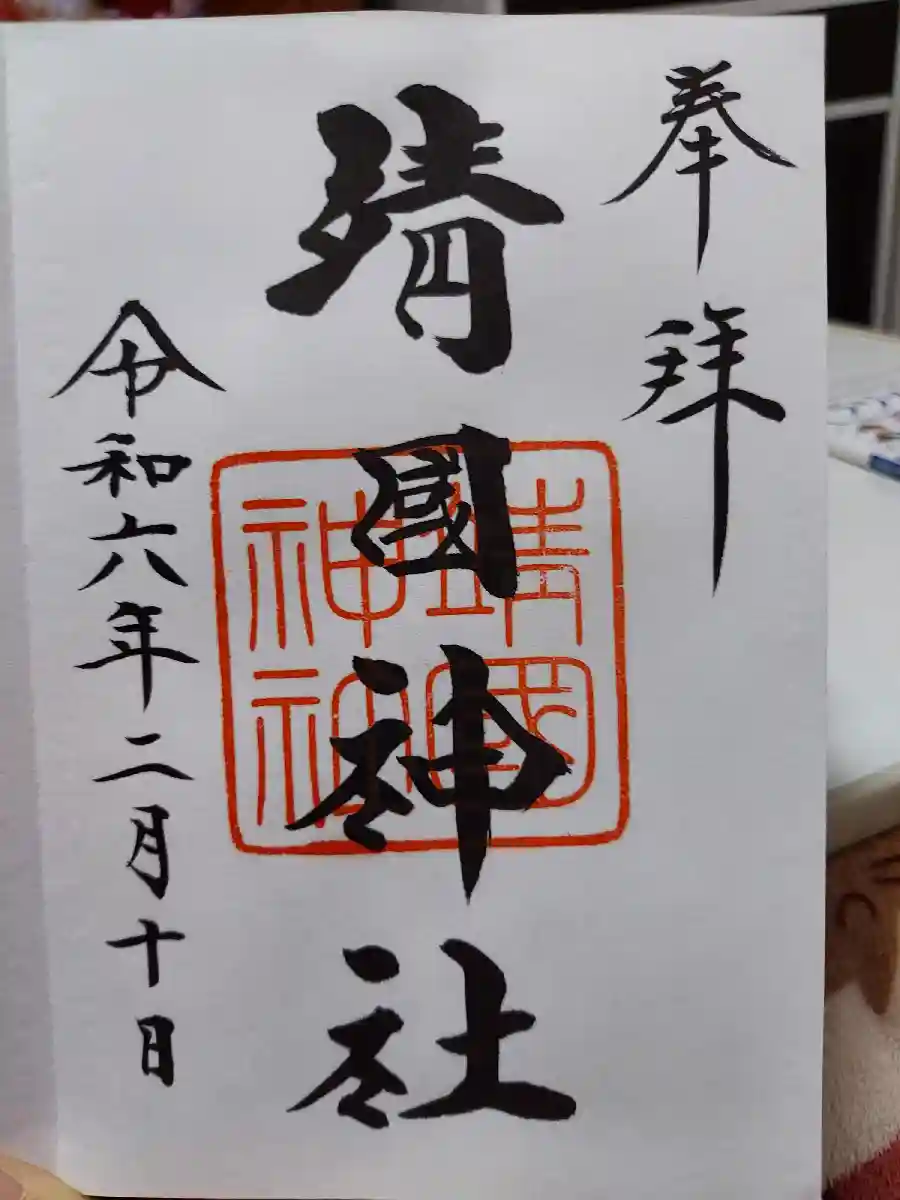 奉拜
靖國神社
靖國
神社
令和六年二月十日